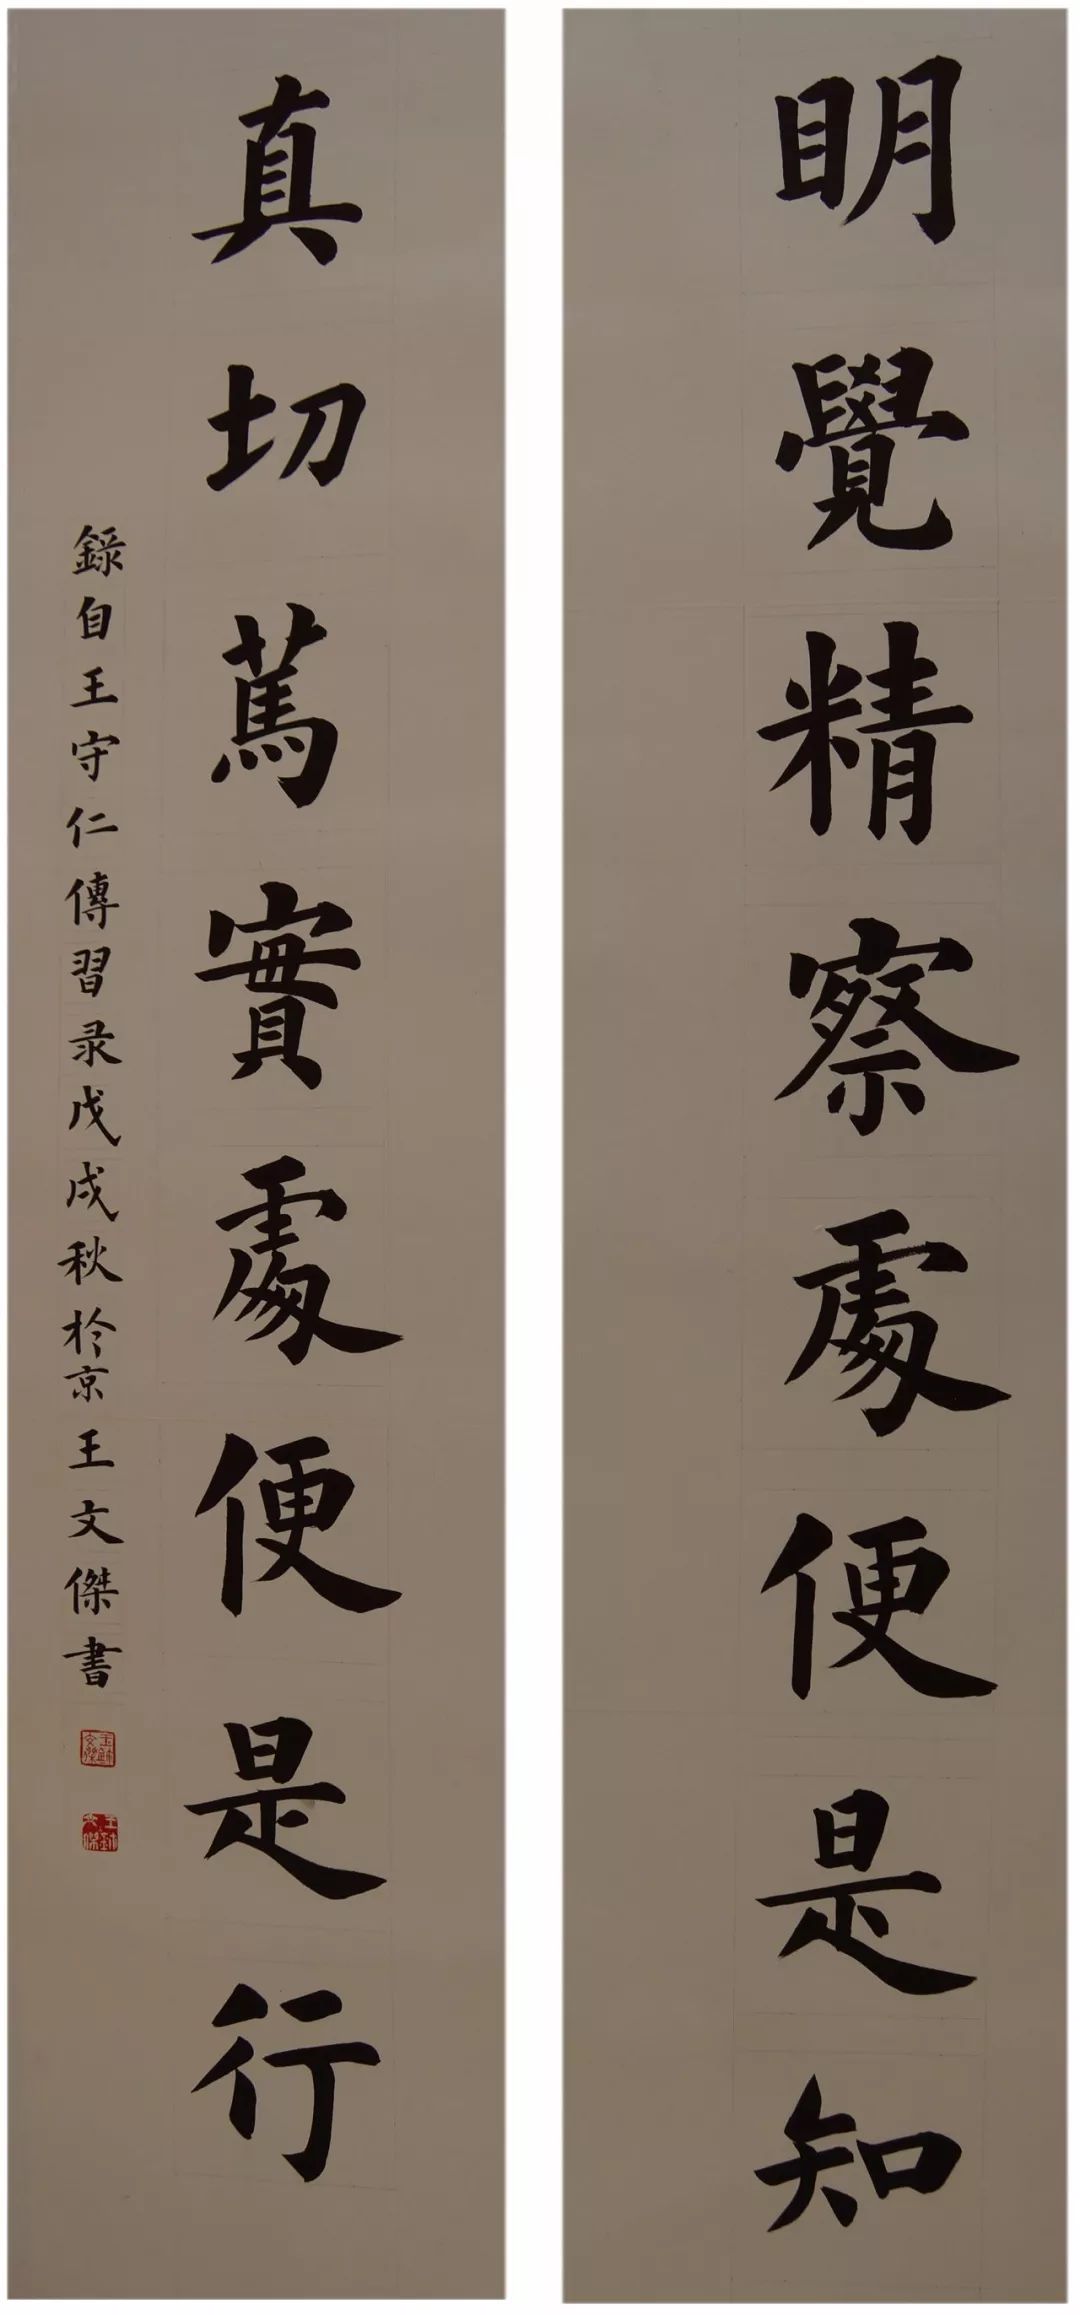 明覺精察處便是知
真切篤實處便是行
錄自王守仁傳習录戊戌秋於京王文傑書